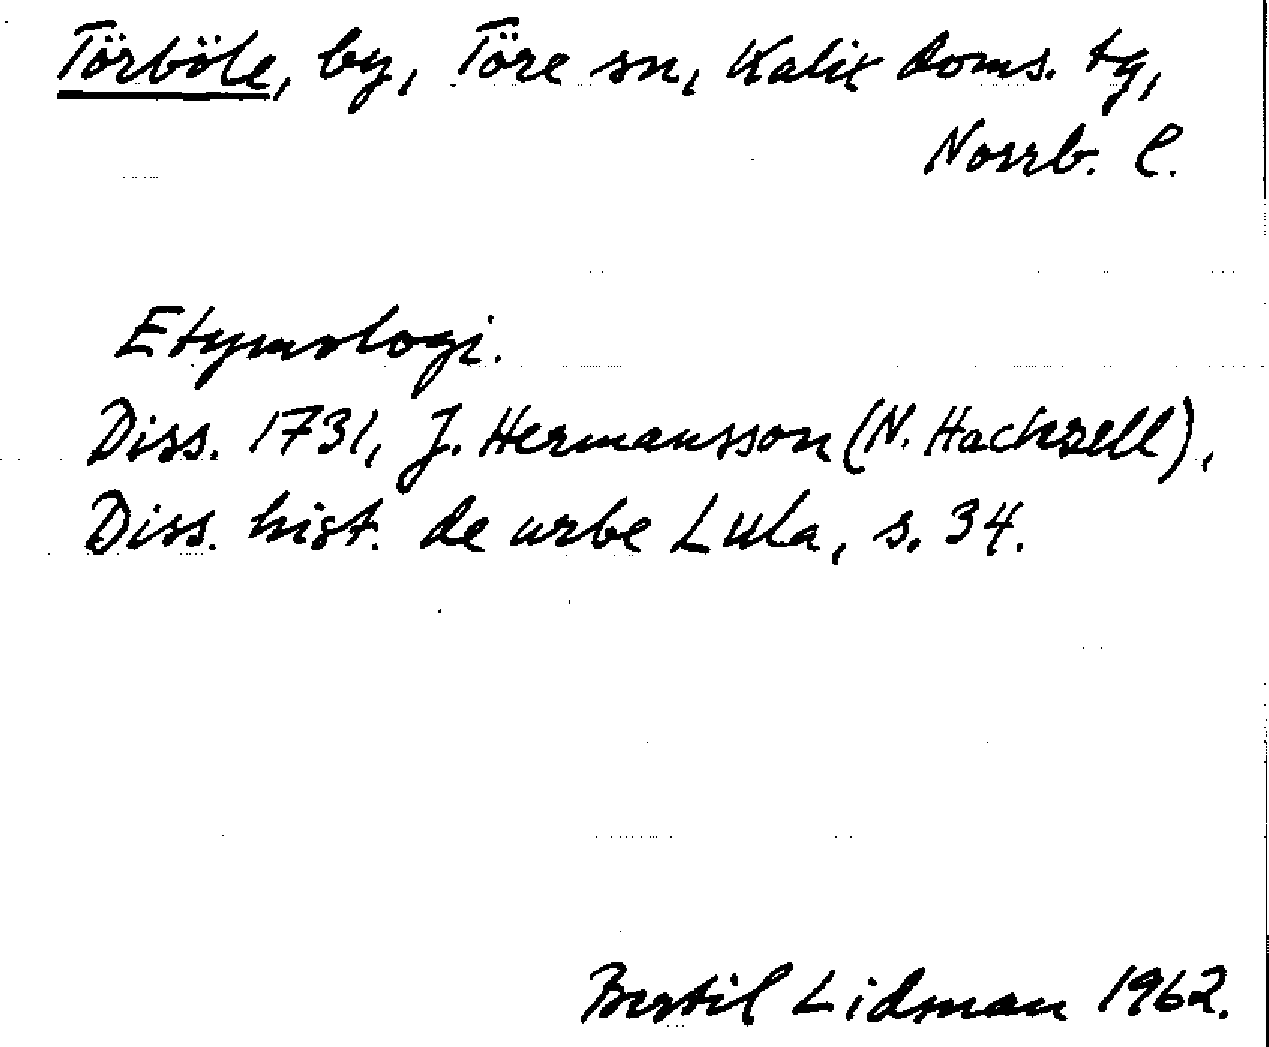 Törböle, by, Töre sn, Kalix doms. tg,
Norrb. l.
Etymologi.
Diss. 1731, J. Hermansson (N. Hackzell),
Diss. hist. de urbe Lula, s. 34.
Bertil Lidman 1962.